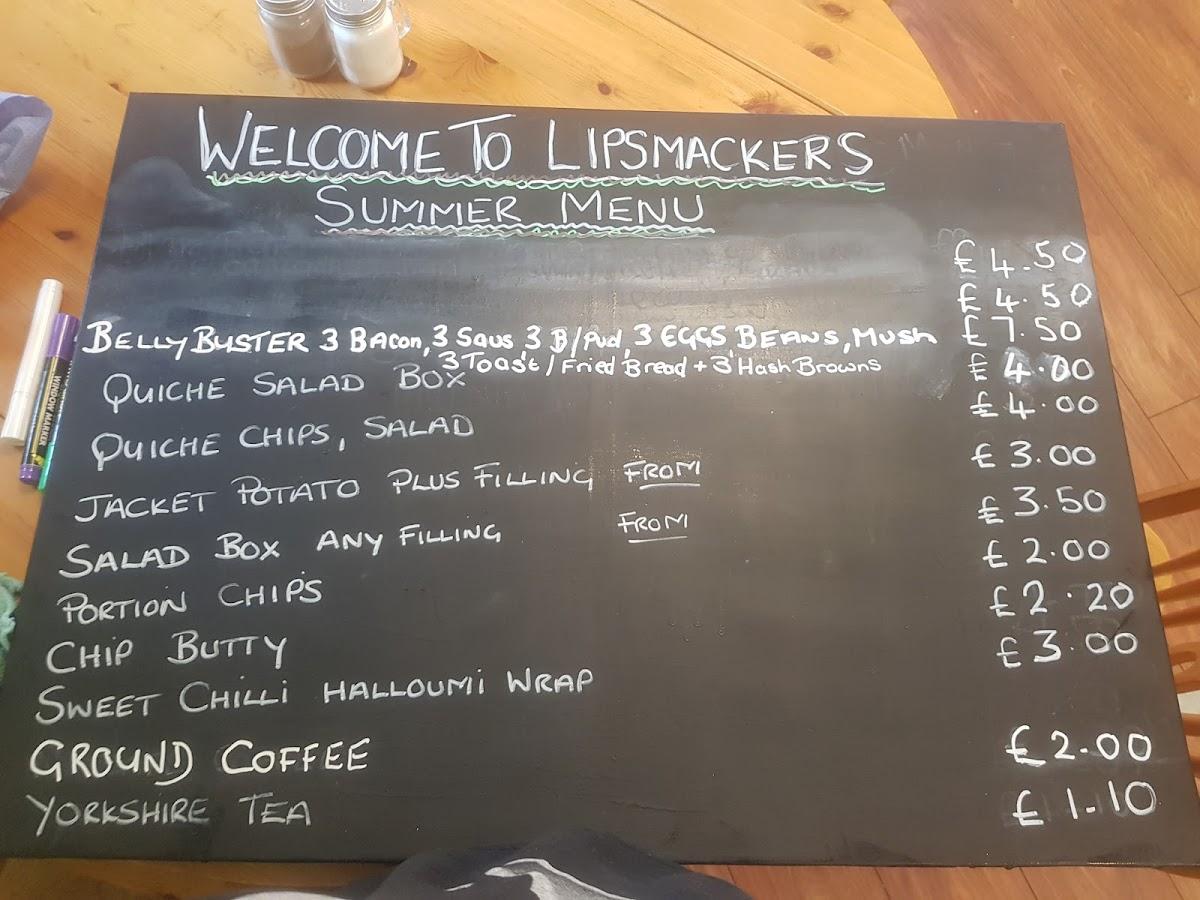 WELCOME TO LIPSMACKERS
SUMMER MENU
£4.50
£4.50
BELLY BUSTER 3 BACON, 3 SAUS 3 B/Pud, 3 EGGS BEANS, MUSH £7.50
3 Toast / Fried Bread + 3 Hash Browns
QUICHE SALAD BOX £4.00
QUICHE CHIPS, SALAD £4.00
JACKET POTATO PLUS FILLING FROM £3.00
SALAD BOX ANY FILLING FROM £3.50
PORTION CHIPS £2.00
CHIP BUTTY £2.20
SWEET CHILLI HALLOUMI WRAP £3.00
GROUND COFFEE £2.00
YORKSHIRE TEA £1.10
WINDOW MARKER